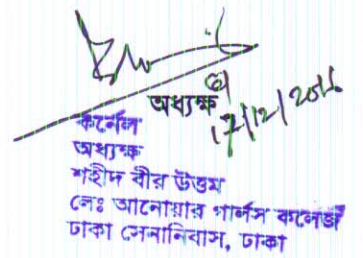 অধ্যক্ষ
17/12/2011
কর্নেল
অধ্যক্ষ
শহীদ বীর উত্তম
লেঃ আনোয়ার গার্লস কলেজ
ঢাকা সেনানিবাস, ঢাকা